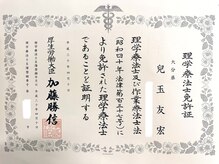 理学療法士免許証
大分県
兒玉友宏
理学療法士及び作業療法士法
(昭和四十年法律第百三十七号)に
より免許された理学療法士で
あることを証明する
厚生労働大臣 加藤勝信